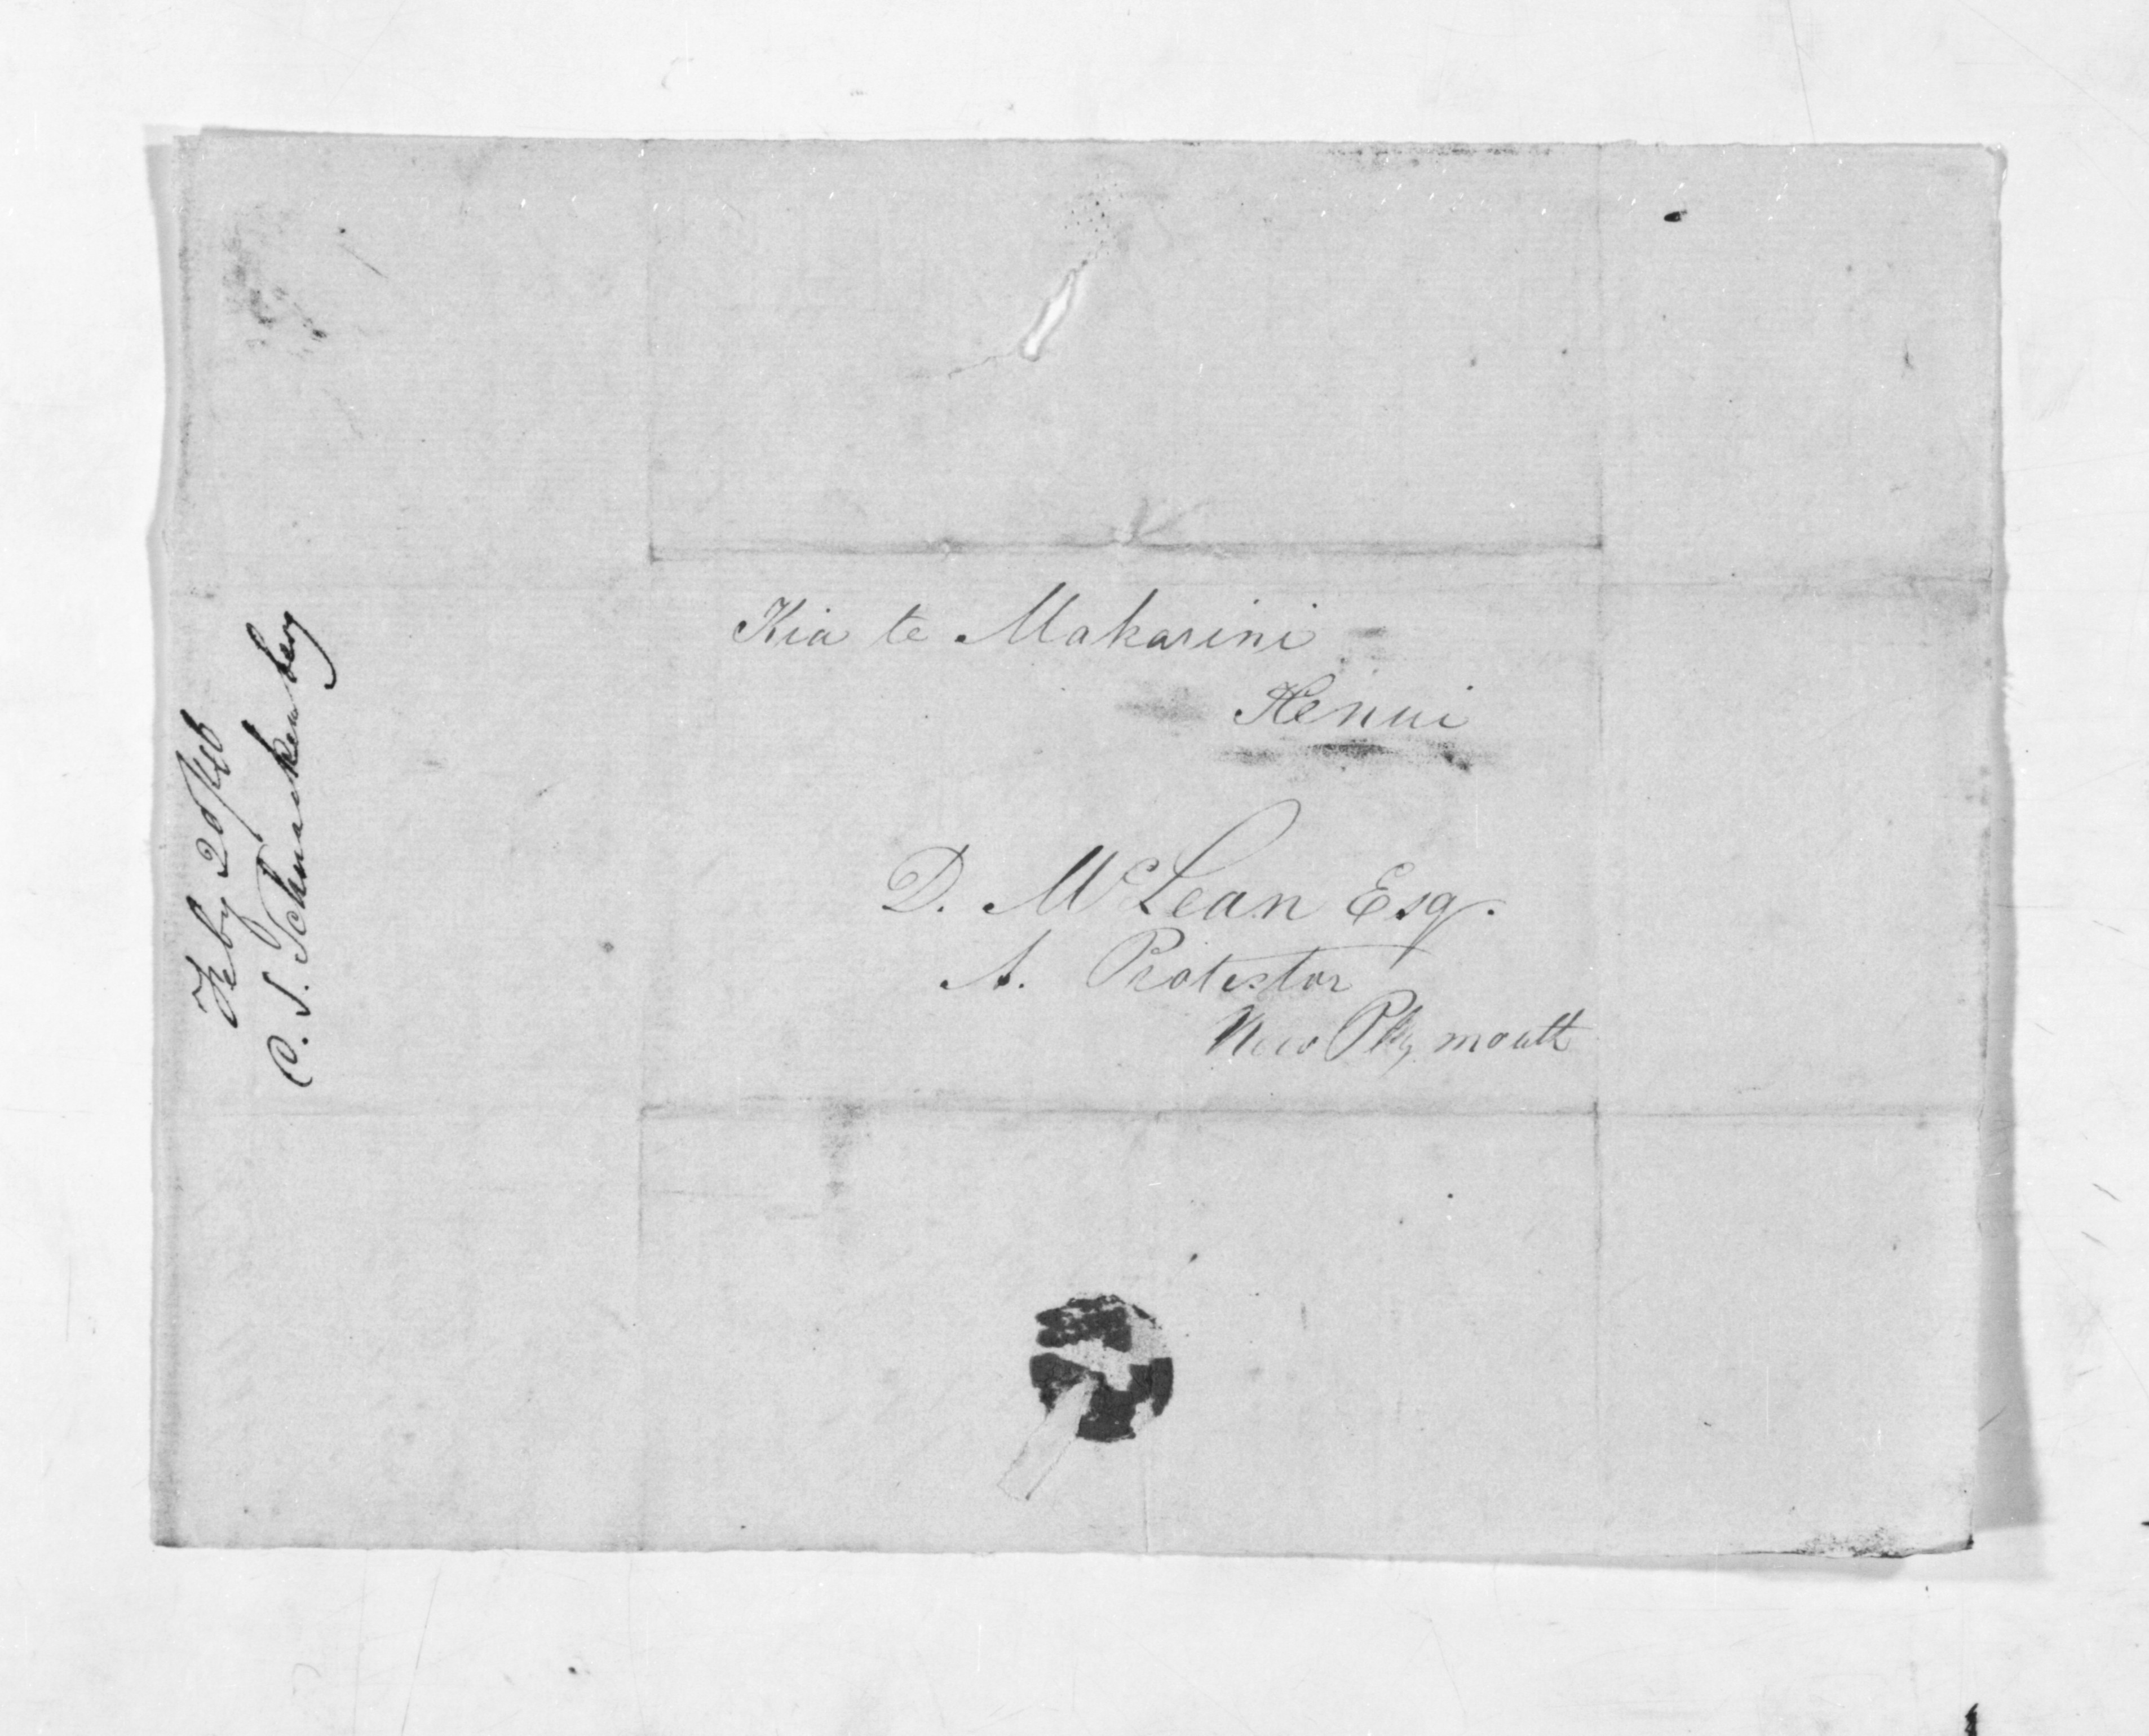 Kia te Makarini
Henui
D. McLean Esq.
A. Protector
New Plymouth
Feby 20/46
C. S. Schnackenberg